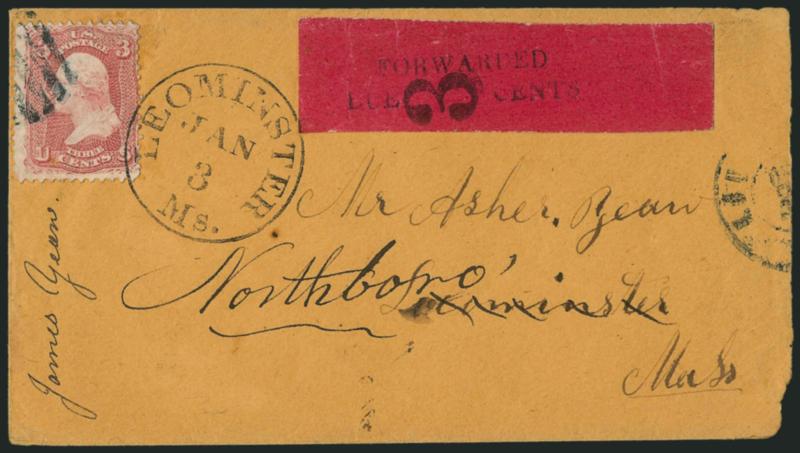 U.S. POSTAGE 3
U THREE CENTS
LEOMINSTER
JAN
3
Ms.
FORWARDED
3 CENTS
Mr Asher.
Northboro'
Leominster
Mass
James